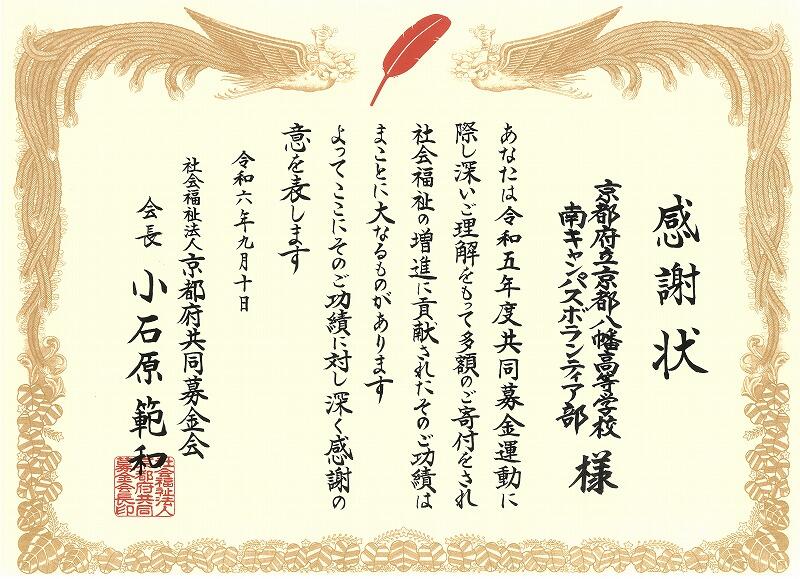 感謝状
京都府立京都八幡高等学校
南キャンパスボランティア部 様
あなたは令和五年度共同募金運動に
際し深いご理解をもって多額のご寄付をされ
社会福祉の増進に貢献されたそのご功績は
まことに大なるものがあります
よってここにそのご功績に対し深く感謝の
意を表します
令和六年九月十日
社会福祉法人京都府共同募金会
会長 小石原範和
社会福祉法人
京都府共同
募金会長印